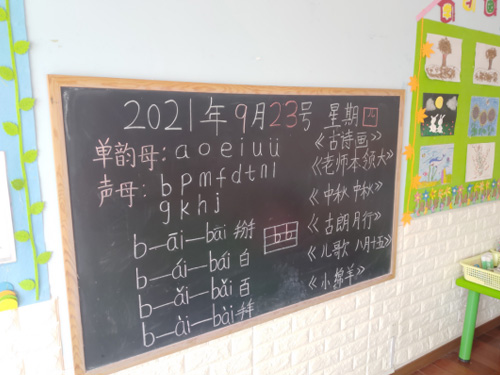 2021年9月23号 星期四
单韵母: a o e i u ü
声母: b p m f d t n l
g k h j
b—āi—bāi 掰
b—ái—bái 白
b—ǎi—bǎi 百
b—ài—bài 拜
b b
《古诗画》
《老师本领大》
《中秋 中秋》
《古朗月行》
《儿歌 八月十五》
《小绵羊》